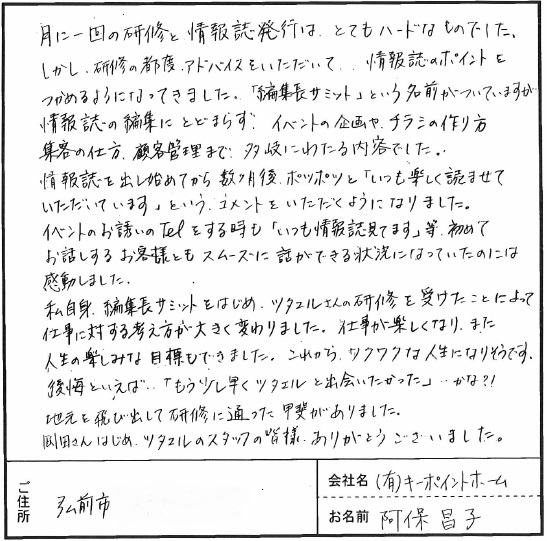 月に一回の研修と情報誌発行は、とてもハードなものでした。
しかし、研修の都度、アドバイスをいただいて、情報誌のポイントを
つかめるようになってきました。「編集長サミット」という名前がついていますが
情報誌の編集にとどまらず、イベントの企画や、チラシの作り方
集客の仕方、顧客管理まで、多岐にわたる内容でした。
情報誌を出し始めてから数ヶ月後、ポツポツと「いつも楽しく読ませて
いただいています」という、コメントをいただくようになりました。
イベントのお誘いのTelをする時も「いつも情報誌見てます」等、初めて
お話しするお客様ともスムーズに話ができる状況になっていたのには
感動しました。
私自身、編集長サミットをはじめ、ツタエルさんの研修を受けたことによって
仕事に対する考え方が大きく変わりました。仕事が楽しくなり、また
人生の楽しみな目標もできました。これから、ワクワクな人生になりそうです。
後悔といえば…「もう少し早くツタエルと出会いたかった」…かな?!
地元を飛び出して研修に通った甲斐がありました。
岡田さんはじめ、ツタエルのスタッフの皆様、ありがとうございました。
ご住所 弘前市
会社名 (有)キーポイントホーム
お名前 阿保 昌子